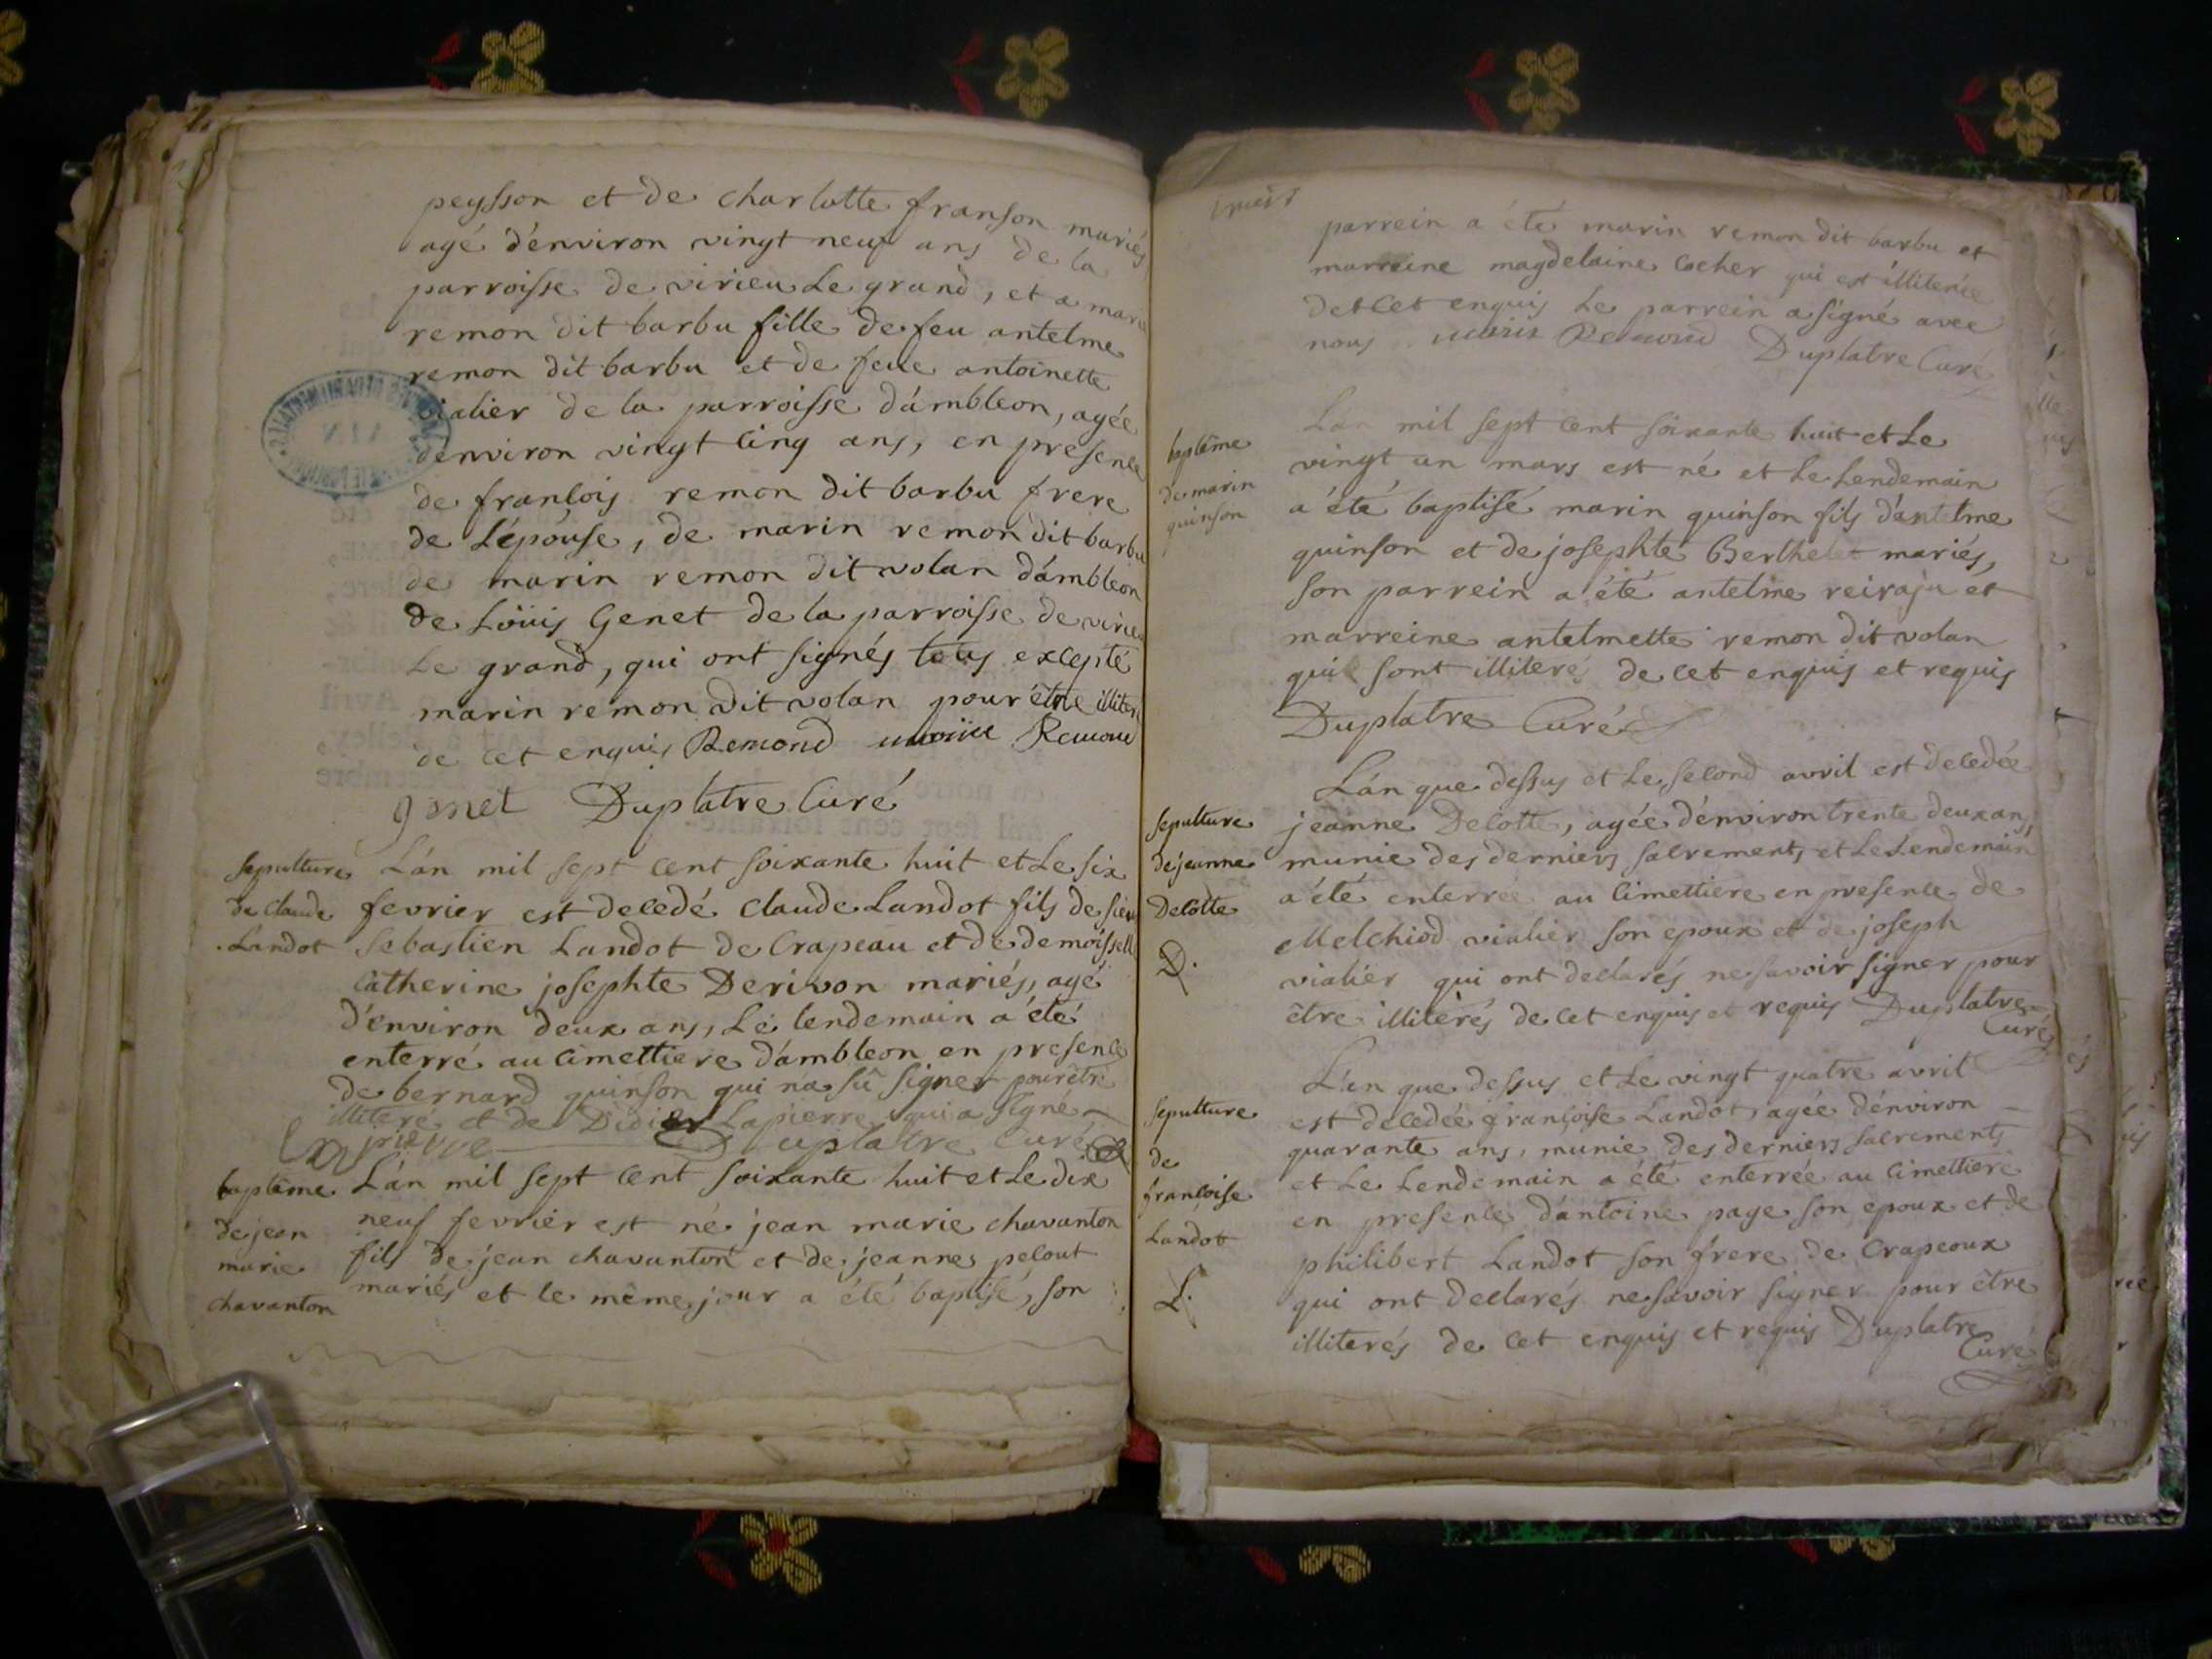 peysson et de charlotte franson mariés
agé d'environ vingt neuf ans de la
parroisse de virieu Le grand, et a marie
remon dit barbu fille de feu antelme
remon dit barbu et de feue antoinette
vialier de la parroisse d'ambleon, agée
d'environ vingt cinq ans, en presence
de francois remon dit barbu frere
de L'épouse, de marin remon dit barbu
de marin remon dit volan d'ambleon
de Loüis Genet de la parroisse de virieu
Le grand, qui ont signés tous excepté
marin remon dit volan pour être illiteré
de cet enquis Remond marin Remond
genet Duplatre Curé
sepulture
de claude
Landot
L'án mil sept cent soixante huit et Le six
fevrier est decedé claude Landot fils de sieur
sebastien Landot de Crapeau et de demoisselle
Catherine josephte Derivon mariés, agé
d'environ deux ans, Le lendemain a été
enterré au Cimettiere d'ambleon en presence
de bernard quinson qui na sû signer pour être
illiteré et de Didier Lapierre qui a signé
Lapierre Duplatre Curé
baptême
de jean
marie
chavanton
L'án mil sept cent soixante huit et Le dix
neuf fevrier est né jean marie chavanton
fils de jean chavanton et de jeanne pelout
mariés et le même jour a été baptisé, son
parrein a été marin remon dit barbu et
marreine magdelaine Cocher qui est illiterée
de Cet enquis Le parrein a signé avec
nous marin Remond Duplatre Curé
baptême
de marin
quinson
L'án mil sept cent soixante huit et Le
vingt un mars est né et Le Lendemain
a été baptisé marin quinson fils d'antelme
quinson et de josephte Berthelet mariés,
son parrein a été antelme reiraju et
marreine antelmette remon dit volan
qui sont illiterés de cet enquis et requis
Duplatre Curé
sepulture
de jeanne
Delotte
D.
L'án que dessus et Le second avril est decedée
jeanne Delotte, agée d'environ trente deux ans,
munie des derniers sacrements et Le Lendemain
a été enterrée au Cimettiere en presence de
Melchiod vialier son epoux et de joseph
vialier qui ont declarés ne savoir signer pour
être illiterés de cet enquis et requis Duplatre
Curé
sepulture
de
francoise
Landot
L.
L'an que dessus et Le vingt quatre avril
est decedée françoise Landot, agée d'environ
quarante ans, munie des derniers sacrements
et Le Lendemain a été enterrée au Cimettiere
en presence d'antoine page son epoux et de
philibert Landot son frere de Crapeoux
qui ont declarés ne savoir signer pour être
illiterés de cet enquis et requis Duplatre
Curé